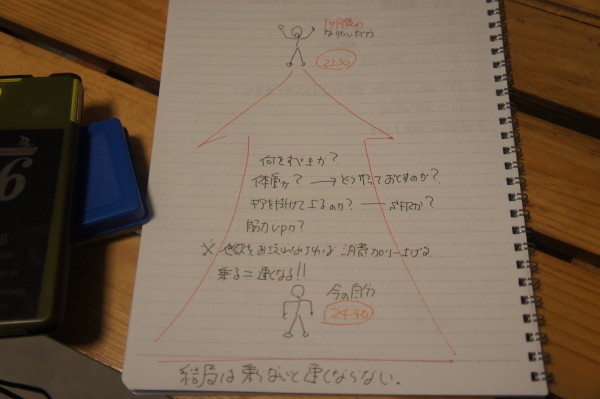 1ヶ月後の
なりたい自分
23:30
何をすべきか?
体重か? → どうやっておとすのか?
ギアを掛けて上るのか? ー
筋力upか?
※ 食欲をおさえなければ 消費カロリー上げる
乗る=速くなる!!
今の自分
24:40
結局は乗らないと速くならない.